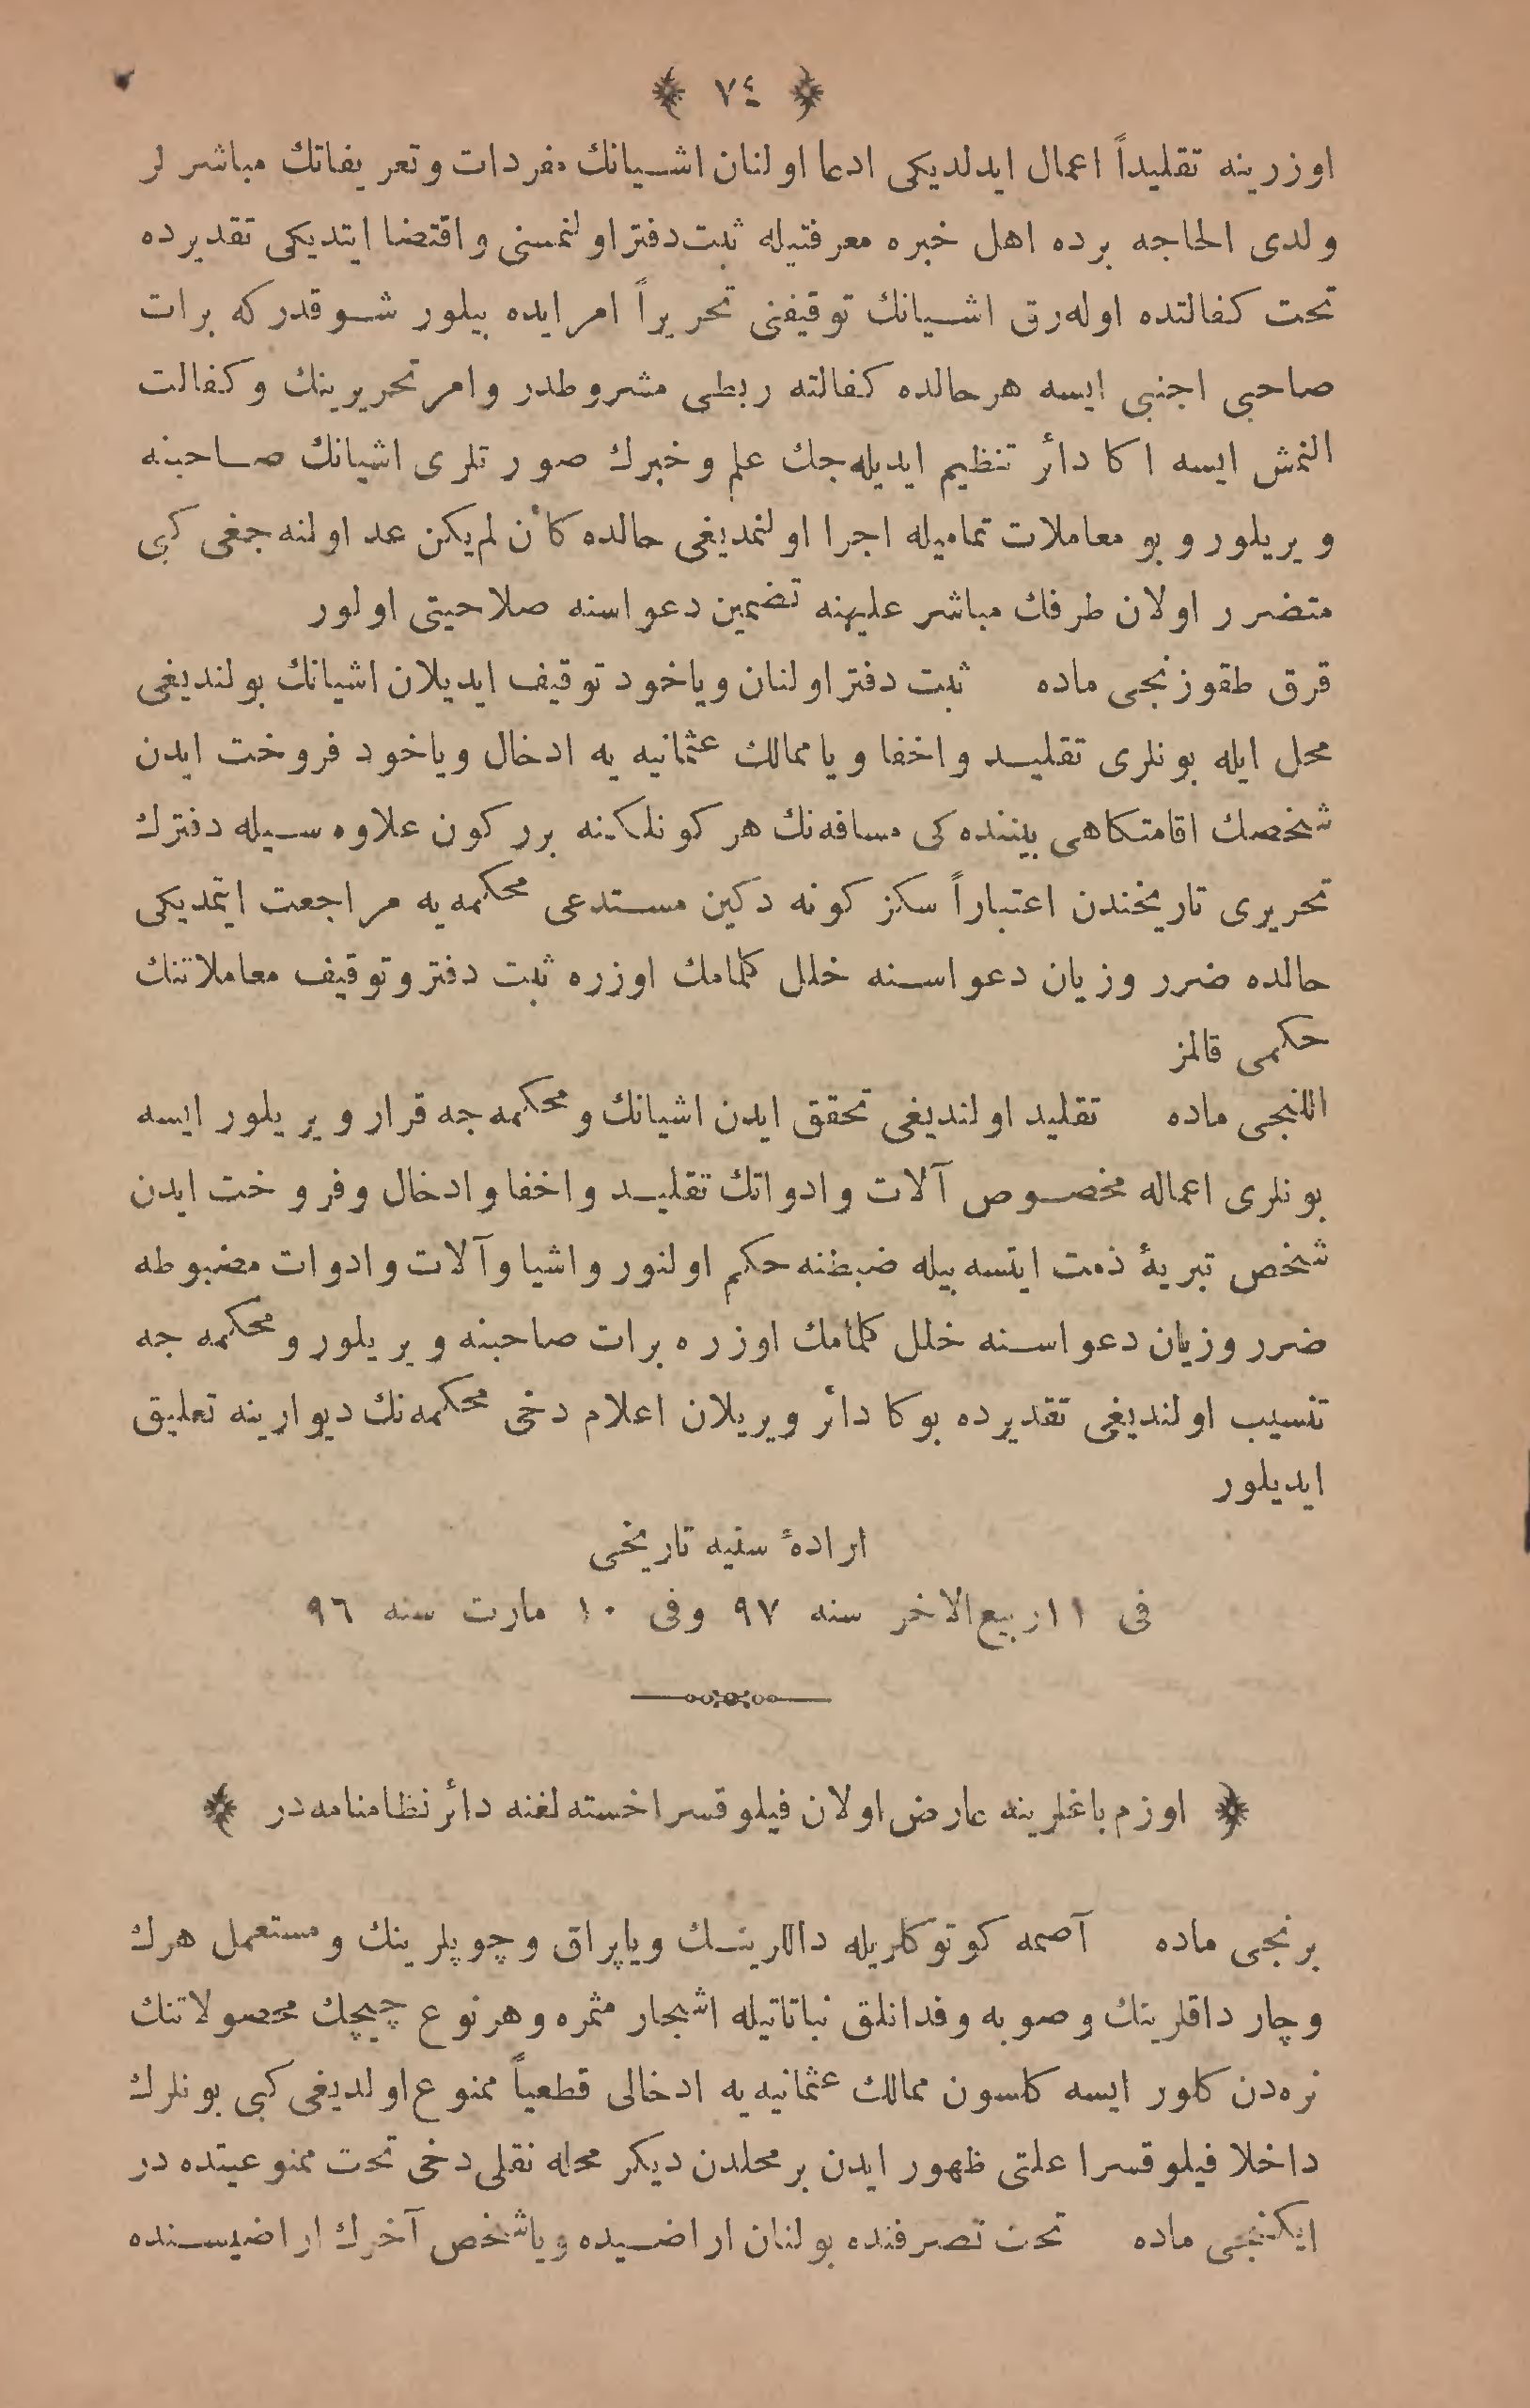 ﴿ ٧٤ ﴾
اوزرينه تقليداً اعمال ايدلديكى ادعا اولنان اشيانك مفردات وتعريفاتك مباشر لر
ولدى الحاجه برده اهل خبره معرفتيله ثبت دفتر اولنمسنى واقتضا ايتديكى تقديرده
تحت كفالتده اوله‌رق اشيانك توقيفنى تحريراً امر ايده بيلور شو قدر كه برات
صاحبى اجنبى ايسه هر حالده كفالته ربطى مشروطدر وامر تحريرينك وكفالت
النمش ايسه اكا دائر تنظيم ايديله‌جك علم وخبرك صورتلرى اشيانك صاحبنه
ويريلور وبو معاملات تماميله اجرا اولنمديغى حالده كأن لم يكن عد اولنه جغى كبى
متضرر اولان طرفك مباشر عليهنه تضمين دعواسنه صلاحيتى اولور
قرق طقوزنجى ماده ثبت دفتر اولنان وياخود توقيف ايديلان اشيانك بولنديغى
محل ايله بونلرى تقليد واخفا ويا ممالك عثمانيه يه ادخال وياخود فروخت ايدن
شخصك اقامتكاهى بيننده كى مسافه‌نك هر كونلكنه برر كون علاوه سيله دفترك
تحريرى تاريخندن اعتباراً سكز كونه دكين مستدعى محكمه‌يه مراجعت ايتمديكى
حالده ضرر وزيان دعواسنه خلل كلمامك اوزره ثبت دفتر وتوقيف معاملاتنك
حكمى قالمز
اللنجى ماده تقليد اولنديغى تحقق ايدن اشيانك ومحكمه جه قرار ويريلور ايسه
بونلرى اعماله مخصوص آلات وادواتك تقليد واخفا وادخال وفروخت ايدن
شخص تبرية ذمت ايتسه بيله ضبطنه حكم اولنور واشيا وآلات وادوات مضبوطه
ضرر وزيان دعواسنه خلل كلمامك اوزره برات صاحبنه ويريلور ومحكمه جه
تنسيب اولنديغى تقديرده بوكا دائر ويريلان اعلام دخى محكمه‌نك ديوارينه تعليق
ايديلور
ارادهٔ سنيه تاريخى
فى ١١ ربيع‌الاخر سنه ٩٧ وفى ١٠ مارت سنه ٩٦
﴿ اوزم باغلرينه عارض اولان فيلوقسرا خسته لغنه دائر نظامنامه‌در ﴾
برنجى ماده آصمه كوتوكلريله داللرينك وياپراق وچوپلرينك ومستعمل هرك
وچار داقلرينك وصوبه وفدانلق نباتاتيله اشجار مثمره وهر نوع چيچك محصولاتنك
نره‌دن كلور ايسه كلسون ممالك عثمانيه‌يه ادخالى قطعياً ممنوع اولديغى كبى بونلرك
داخلا فيلوقسرا علتى ظهور ايدن بر محلدن ديكر محله نقلى دخى تحت ممنوعيتده در
ايكنجى ماده تحت تصرفنده بولنان اراضيده وياشخص آخرك اراضيسنده